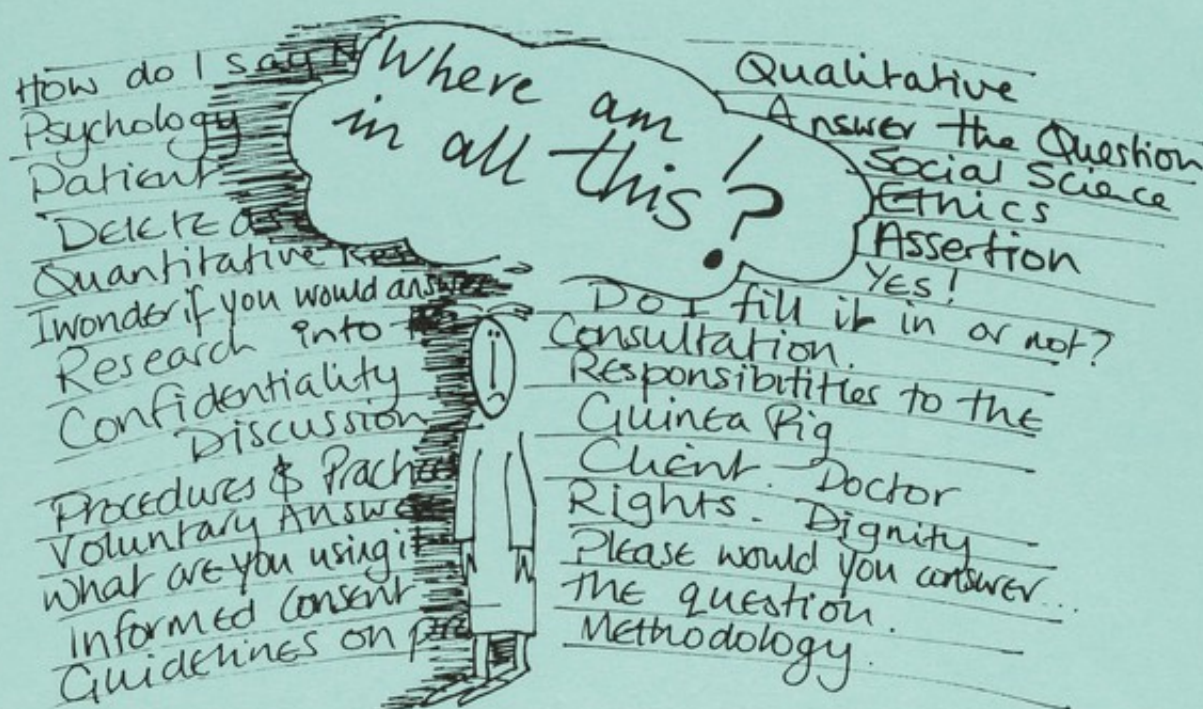 How do I say N
Psychology
Patient
Delete as
Quantitative Res
I wonder if you would answer
Research into
Confidentiality
Discussion
Procedures & Practice
Voluntary Answe
What are you using it
Informed Consent
Guidelines on pre
Where am I
in all this?
Qualitative
Answer the Question
Social Science
Ethics
Assertion
Yes!
Do I fill it in or not?
Consultation.
Responsibilities to the
Guinea Pig
Client. Doctor
Rights. Dignity
Please would you answer...
the question.
Methodology.